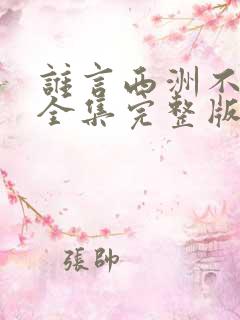 誰言西洲不
全集完整版
張帥